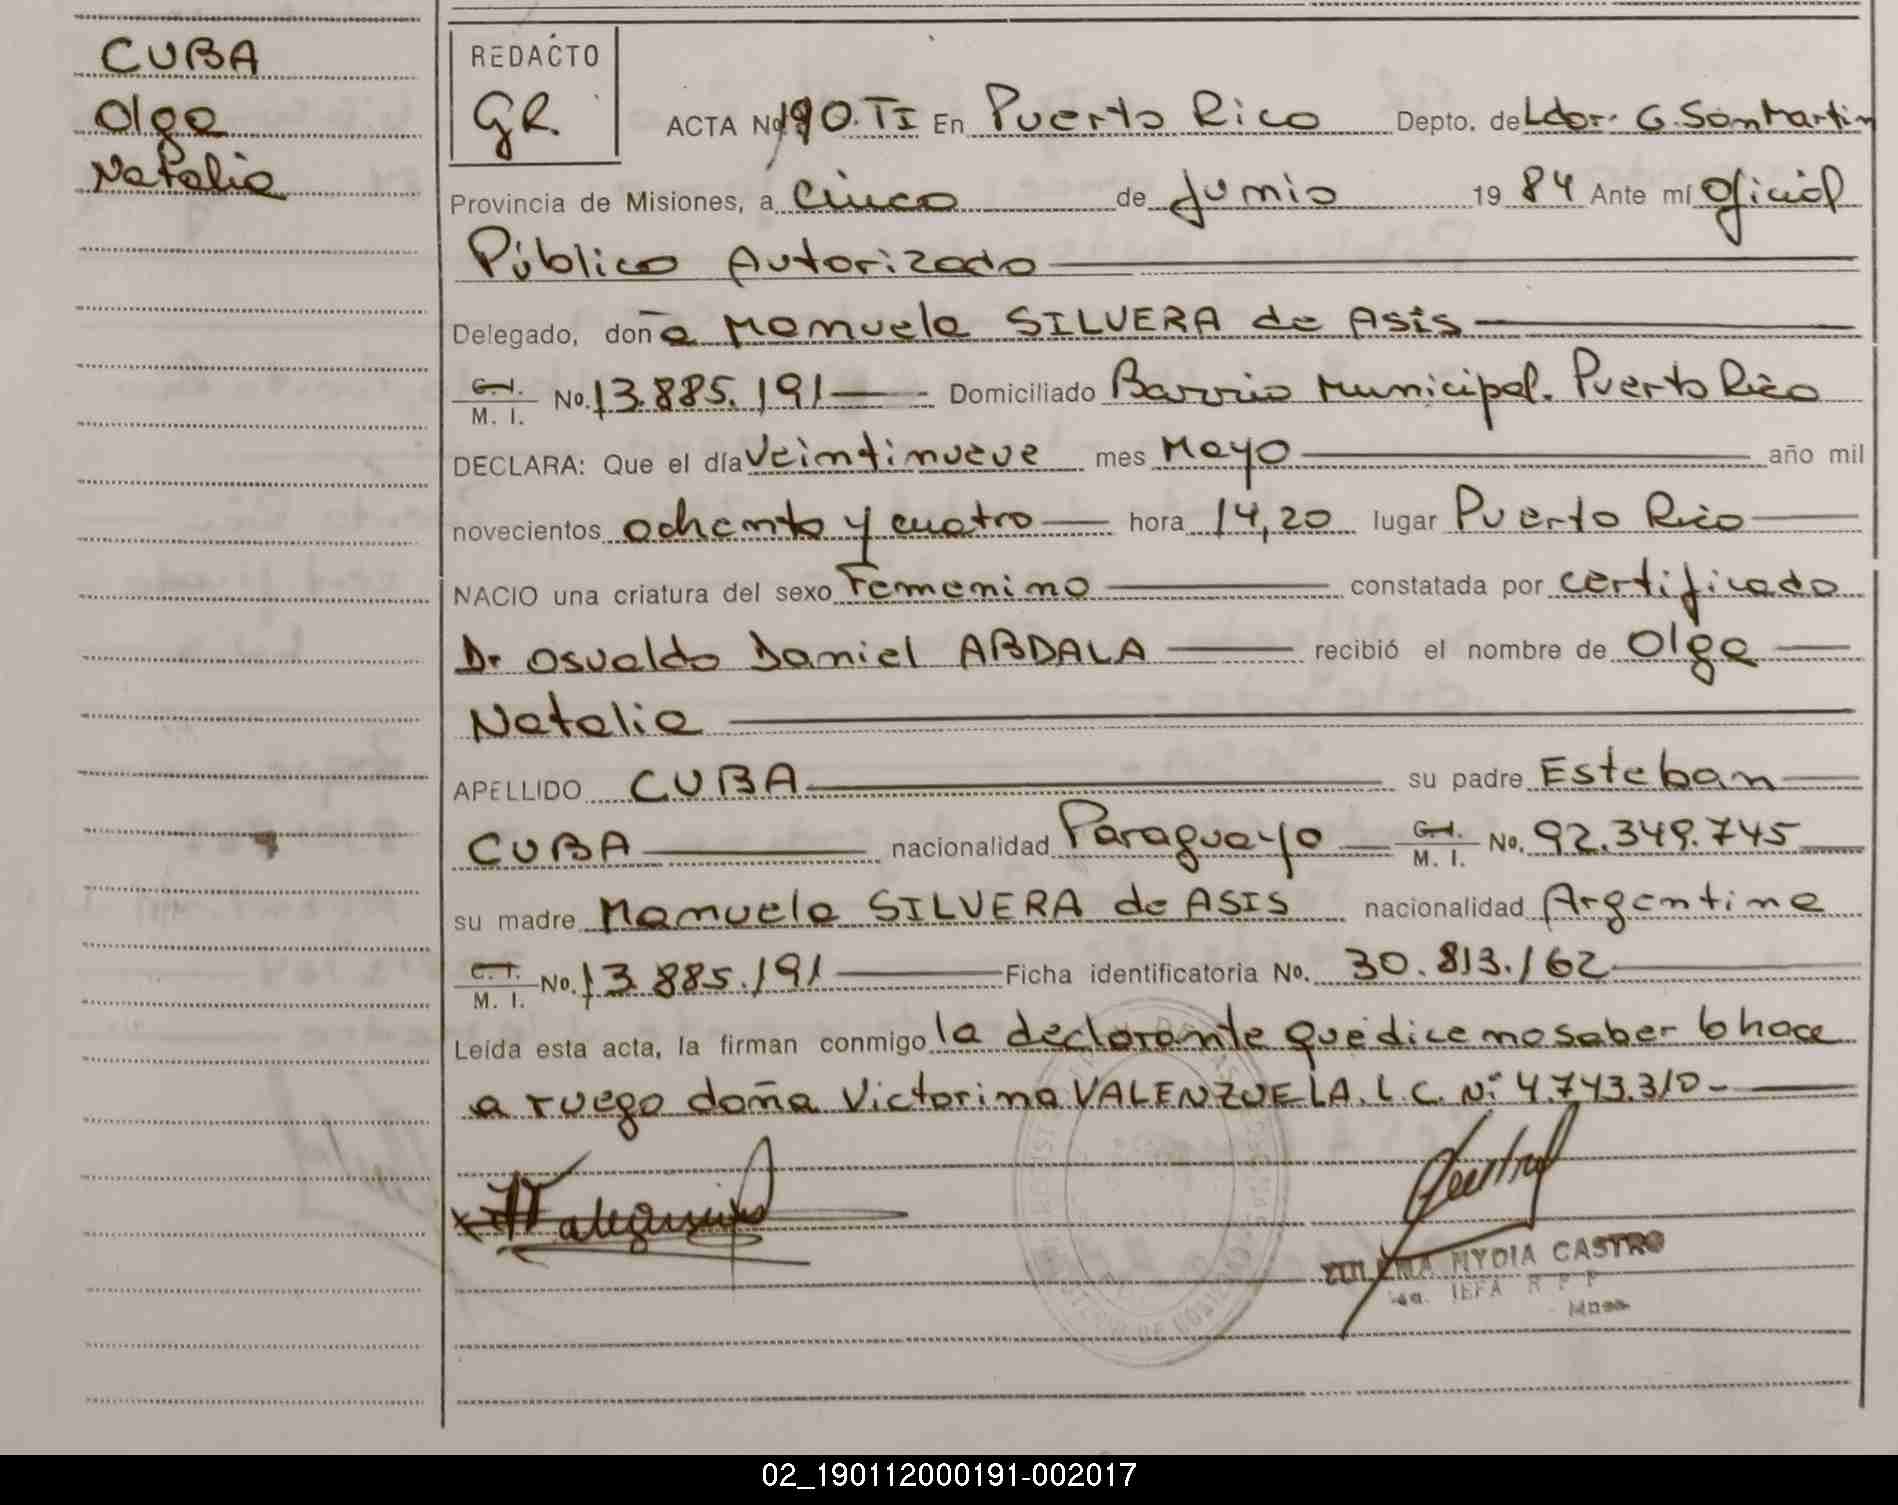 CUBA
Olga
Natalia
REDACTO
GR.
ACTA No 190. TI En Puerto Rico Depto. de Ldor. G. San Martin
Provincia de Misiones, a cinco de junio 19 84 Ante mí oficial
Público Autorizado
Delegado, doña Manuela SILVERA de ASis
C. I. M. I. No. 13.885.191 Domiciliado Barrio Municipal. Puerto Rico
DECLARA: Que el día veintinueve mes Mayo año mil
novecientos ochenta y cuatro hora 14,20 lugar Puerto Rico
NACIO una criatura del sexo Femenino constatada por certificado
Dr Osvaldo Daniel ABDALA recibió el nombre de Olga
Natalia
APELLIDO CUBA su padre Esteban
CUBA nacionalidad Paraguayo C. I. M. I. No. 92.349.745
su madre Manuela SILVERA de ASIS nacionalidad Argentina
C. I. M. I. No. 13.885.191 Ficha identificatoria No. 30.813.162
Leída esta acta, la firman conmigo la declarante que dice no saber lo hace
a ruego doña Victorina VALENZUELA. L. C. Nº 4.743.310-
NYDIA CASTRO
02_190112000191-002017